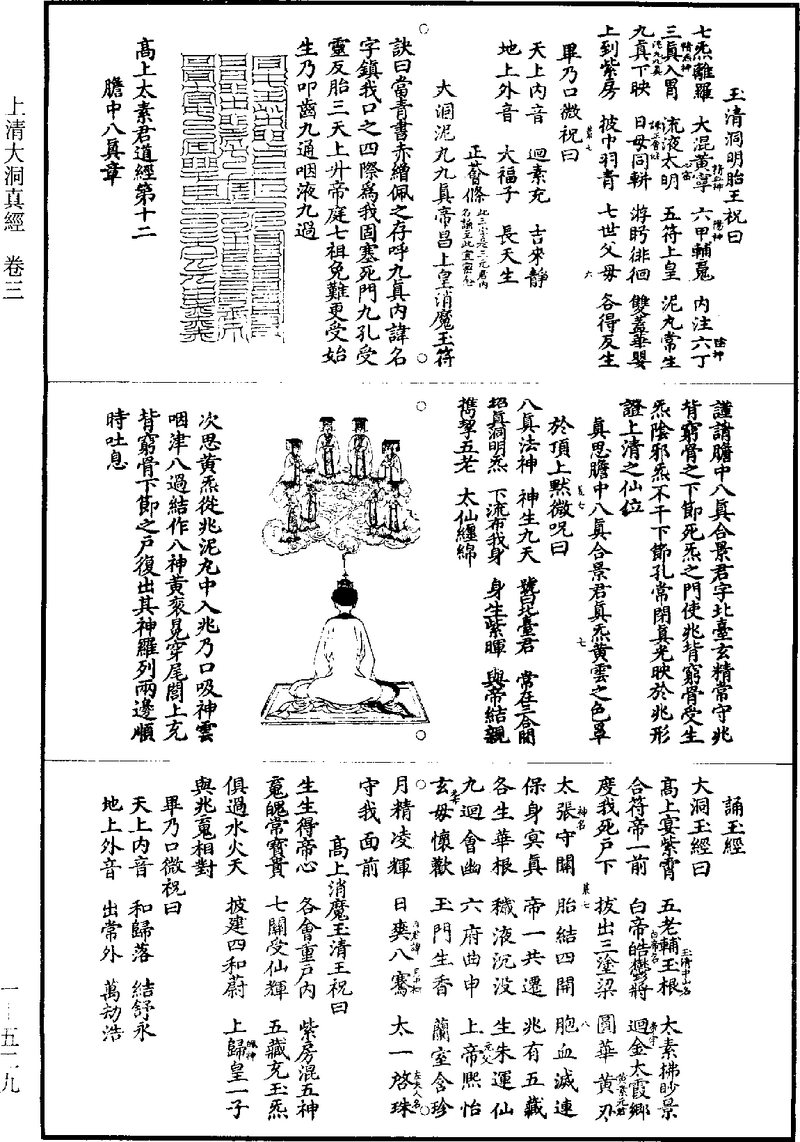 玉清洞明胎王祝曰
七炁離羅 大混黃寧 六甲輔嵬 內注六丁
三真入胃 流液太明 五符上皇 泥丸常生
九真下映 日母同軿 游眄徘徊 雙蓋華嬰
上到紫房 披巾羽青 七世父母 各得反生
畢乃口微祝曰
天上內音 迴素充 吉來靜
地上外音 大福子 長天生
正
大洞泥丸九真帝昌上皇消魔玉符
訣曰當青書赤繒佩之存呼九真內諱名
字鎮我口之四際為我固塞死門九孔受
靈反胎三天上升帝庭七祖免難更受始
生乃叩齒九通咽液九過
高上太素君道經第十二
膽中八真章
謹請膽中八真合景君字北臺玄精常守兆
背窮骨之下節死炁之門使兆背窮骨受生
炁陰邪炁不干下節孔常閉真光映於兆形
證上清之仙位
真思膽中八真合景君真炁黃雲之色罩
於頂上默微呪曰
八真法神 神生九天 號曰北臺君 常在三合間
招真洞明炁 下流布我身 身生紫暉 與帝結親
攜挈五老 太仙纏綿
次思黃炁從兆泥丸中入兆乃口吸神雲
咽津八過結作八神黃衮見穿尾閭上充
背窮骨下節之戶復出其神羅列兩邊順
時吐息
誦玉經
大洞玉經曰
高上宴紫霄 五老輔玉根 太素拂眇景
合符帝一前 白帝皓鬱將 迴金太霞鄉
度我死戶下 拔出三塗梁 圓華黃刃
太張守關 胎結四開 胞血滅連
保身寘真 帝一共遷 兆有五藏
各生華根 穢液沉沒 生朱運仙
九迴會幽 六府曲申 上帝熙怡
玄母懷歡 玉門生香 蘭室含珍
月精凌輝 日爽八騫 太一啓珠
守我面前
高上消魔玉清王祝曰
生生得帝心 各會重戶內 紫房混五神
嵬魄常寶貴 七關受仙輝 五藏充玉炁
俱過水火天 披建四和蔚 上歸皇一子
與兆嵬相對
畢乃口微祝曰
天上內音 和歸落 結舒永
地上外音 出常外 萬劫浩
上清大洞真經 卷三
一—五二九